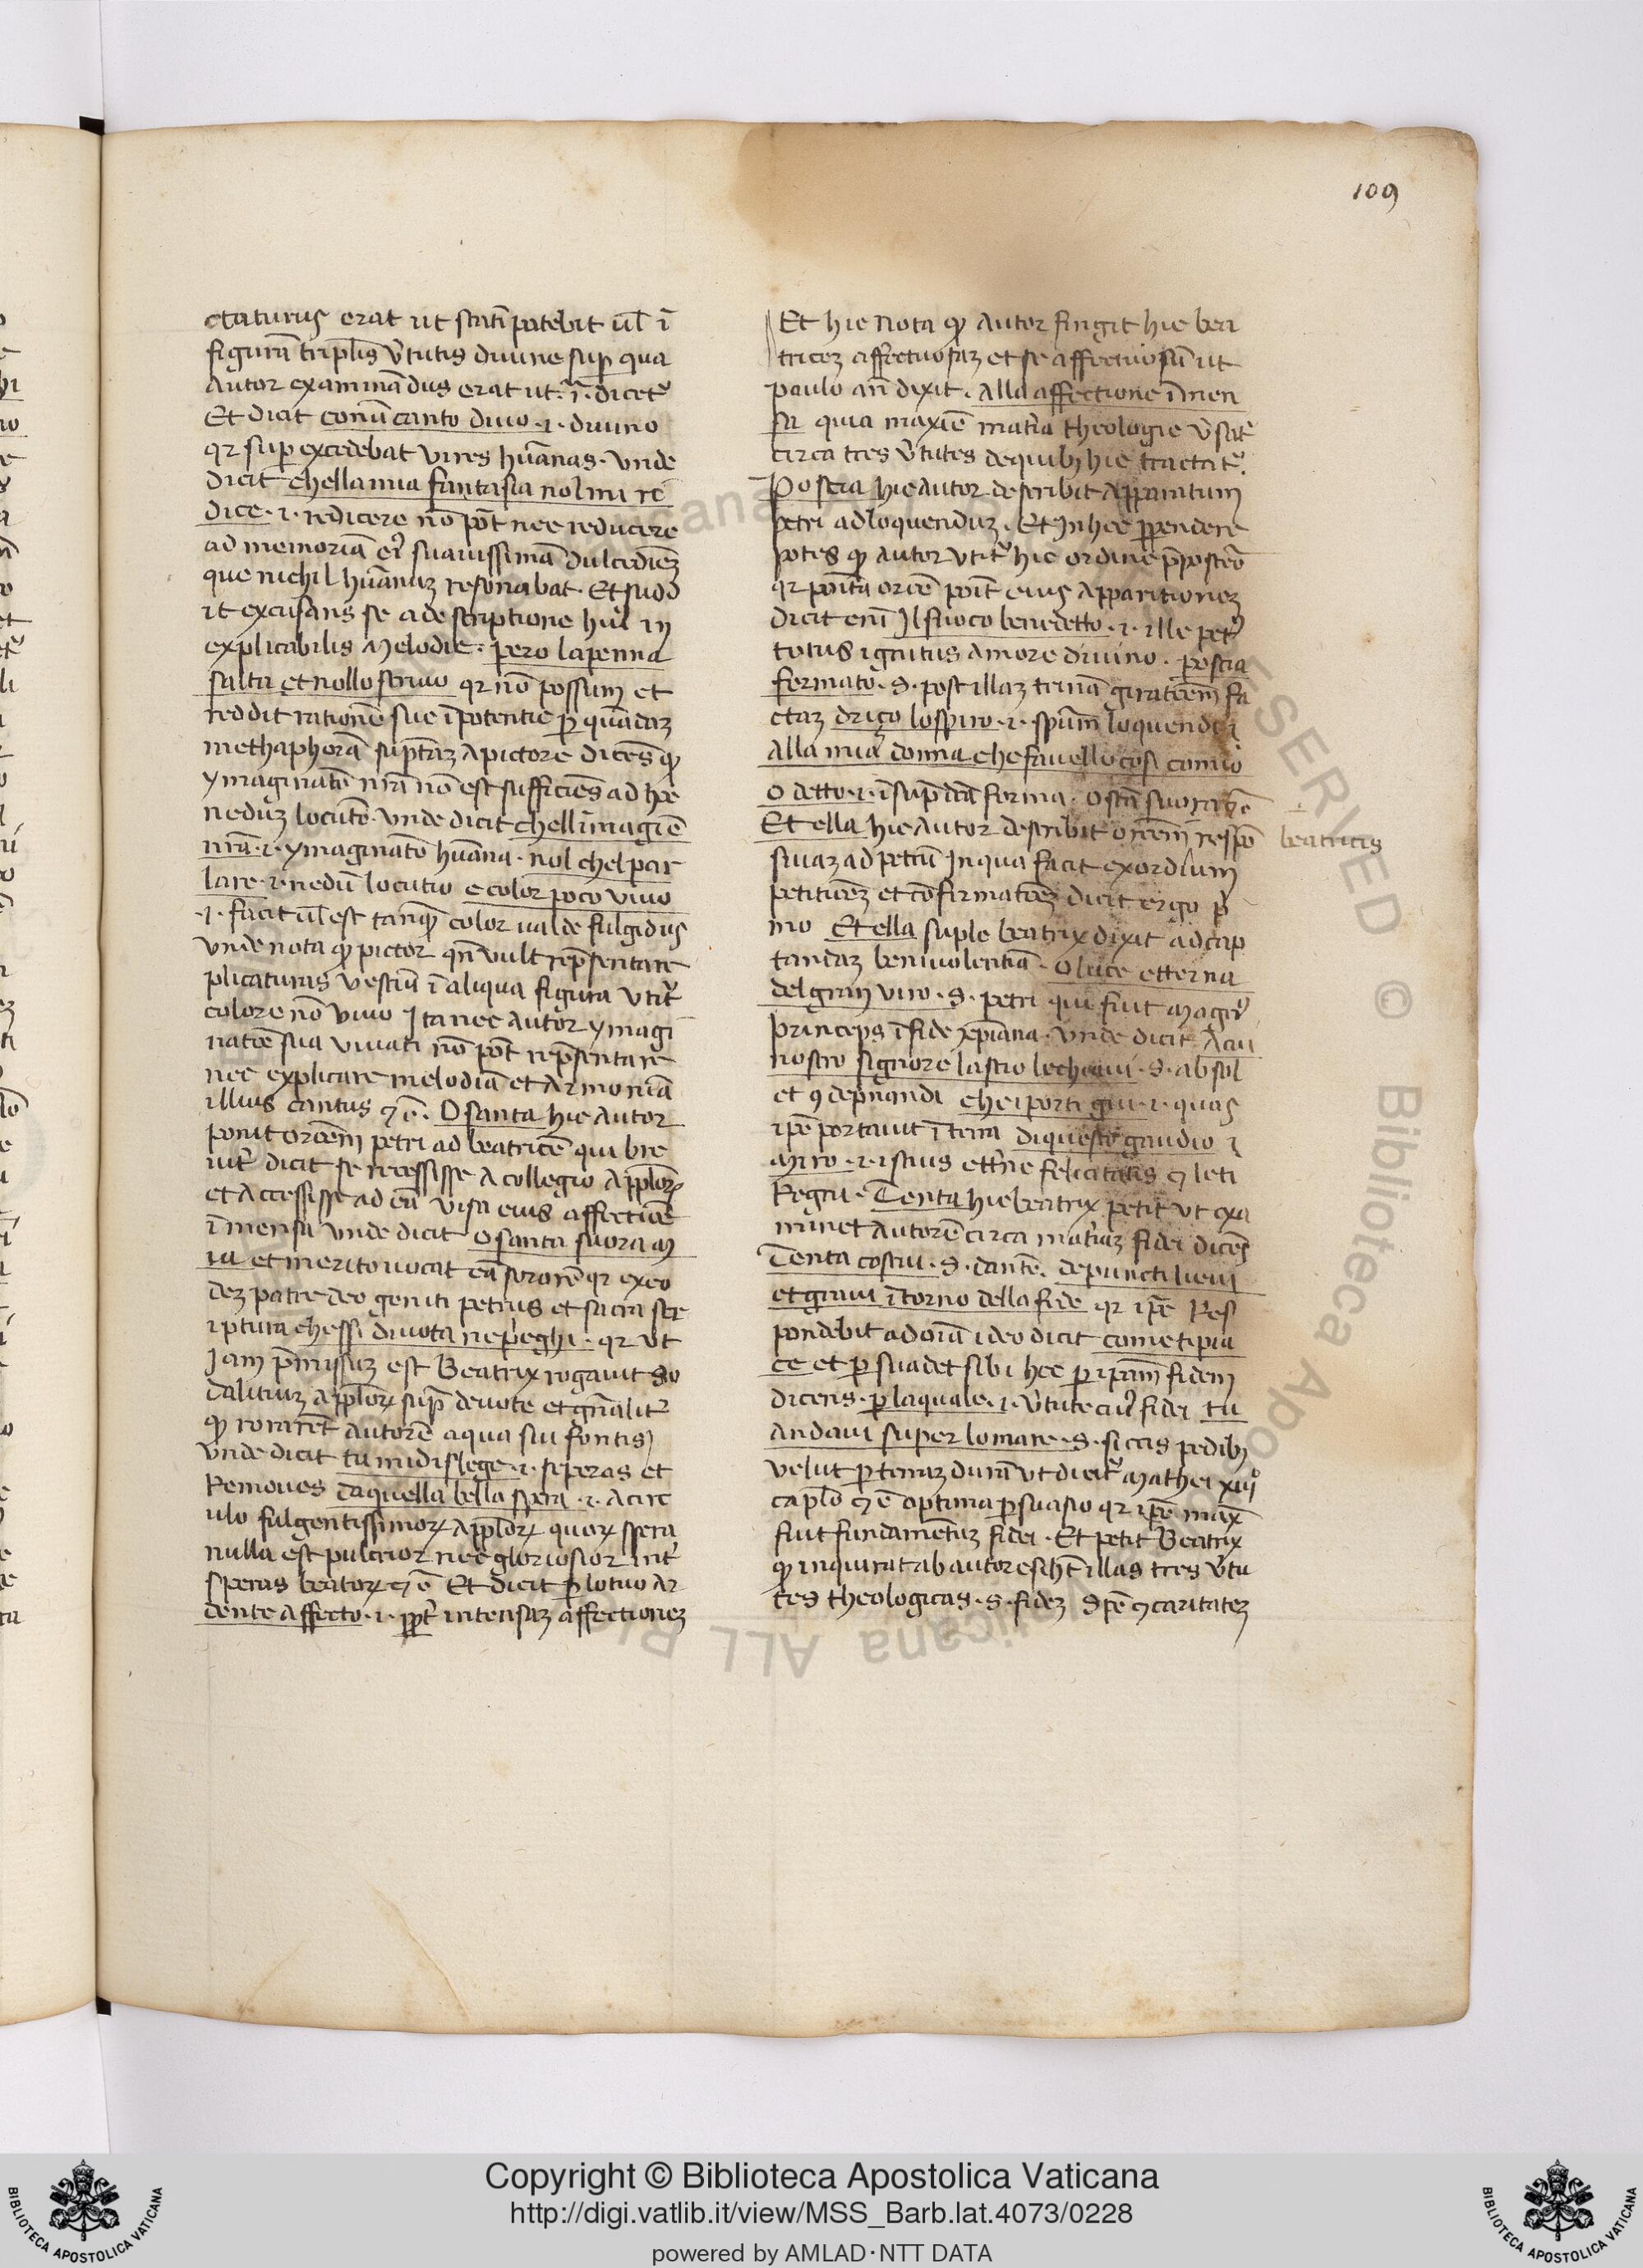 109
ctaturus erat ut stati patebit ul i
figura triplis vtutis divine sup qua
Autor examinadus erat ut. i. dicet
Et dicit conu canto divo .i. divino
qr sup excedebat vires humanas. Unde
dicit chella mia fantasia nol mi ri
dice .i. redicere no pot nec reducere
ad memoria ei suavissima dulcediez
que nichil humanuz resonabat. Et subd
it excusans se a descriptione hui in
explicabilis melodie. pero la penna
salta et nollo scrivo qr no possum et
reddit ratione sue ipotentie p quadaz
methaphora suptaz a pictore dices q
ymaginatoe nra no est sufficies ad hoc
neduz locutoe. Unde dicit chell imagie
nra .i. ymaginato humana. nol chel par
lare .i. nedu locutio e color poco vivo
.i. facit ul est tanq color valde fulgidus
Unde nota q pictor qn vult representare
plicaturas vestiu i aliqua figura utit
colore no vivo Ita nec autor ymagi
natoe sua vivati no pot representare
nec explicare melodia et armonia
illius cantus 7 c. O santa hic autor
ponit oroem petri ad beatrice qui bre
vit dicit se recessisse a collegio applor
et accessisse ad ea visa eius affectioe
imensa unde dicit o santa suora m
ia et merito vocat ea sorore qr ex eo
dez patre deo geniti petrus et sacra scr
iptura chessi divota ne prieghi. qr ut
Jam pmissuz est Beatrix rogavit So
dalitiuz applor sup devote et gnalit
q roraret autore aqua sui fontis
Unde dicit tu mi dislege .i. seperas et
Removes da quella bella spera .i. a circ
ulo fulgentissimor applor quor spera
nulla est pulcrior nec gloriosior int
speras beator 7 c Et dicit p lo tuo ar
dente affecto .i. ppt intensaz affectionez
Et hic Nota q autor fingit hic bea
tricez affectuosaz et se affectuosu ut
paulo an dixit. alla affectione imen
sa quia maxie matia theologie vsat
circa tres vtutes de quib hic tractat.
Poscia hic autor describit apparatum
petri ad loquenduz. Et in hoc ppendere
potes q autor utit hic ordine ppostero
qr posita oroe poit eius apparitionez
dicit eni Il fuoco benedetto .i. ille pet
totus ignitus amore divino. poscia
fermato .S. post illaz trina giratoem fa
ctaz driço lo spiro .i. spum loquendi
Alla mia donna che favello cosi comio
o detto .i. i sup dca forma. o sta suora 7 c
Et ella hic autor describit oroem respo beatricis
sivaz ad petru In qua facit exordium
petitioez et cofirmatoez dicit ergo p
mo Et ella suple beatrix dixit ad cap
tandaz benivolentia. O luce etterna
del gran viro .S. petri qui fuit magr
princeps i fide xpiana. Unde dicit A cui
nostro signore lascio le chiavi .S. absol
et 9depnandi che i porti giu .i. quas
ipe portavit i terra di questo gaudio
miro .i. istius ettne felicitatis 7 leti
Regni. Tenta hic beatrix petit ut exa
minet autore circa matiaz fidei dices
Tenta costui .S. dante. de puncti lievi
et gravi i torno della fide qr ipe Res
pondebit ad oia ideo dicit come ti pia
ce et psuadet sibi hoc p ipam fidem
dicens. p la quale .i. vtute cui fidei tu
andavi super lo mare .S. siccis pedib
velut p terraz dura ut dicit mathei xiiij
caplo 7 e optima psuasio qr ipe max
fuit fundamentuz fidei. Et petit Beatrix
q inquirat ab autore si ht illas tres vtu
tes theologicas .S. fidez Spe 7 caritatez
Copyright © Biblioteca Apostolica Vaticana
http://digi.vatlib.it/view/MSS_Barb.lat.4073/0228
powered by AMLAD·NTT DATA